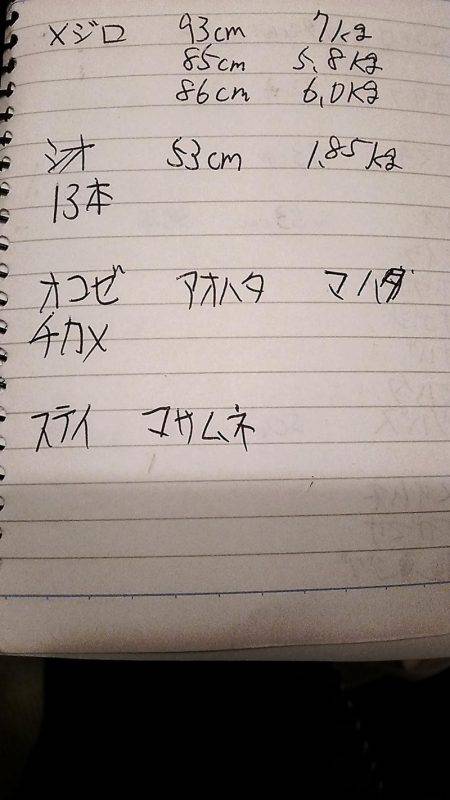 メジロ 93cm 7kg
85cm 5.8kg
86cm 6.0kg
シオ 53cm 1.85kg
13本
オコゼ アオハタ マハタ
チカメ
ステイ マサムネ